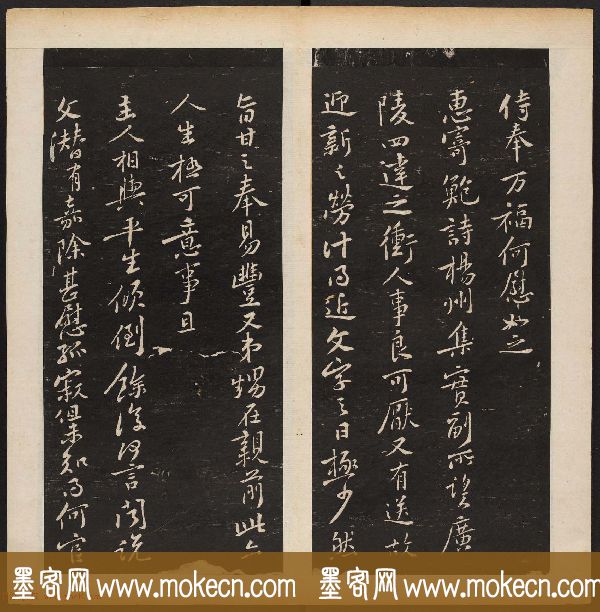 侍奉万福何慰如之
惠寄鮑詩楊州集實副所望廣
陵四達之衝人事良可厭又有送故
迎新之勞計得近文字之日極少然
旨甘之奉易豐又弟甥在親前此亦
人生極可意事且
主人相與平生傾倒餘復何言聞說
文潛有嘉除甚慰孤寂但未知得何官
墨客网 www.mokecn.com 墨客网 www.mokecn.com